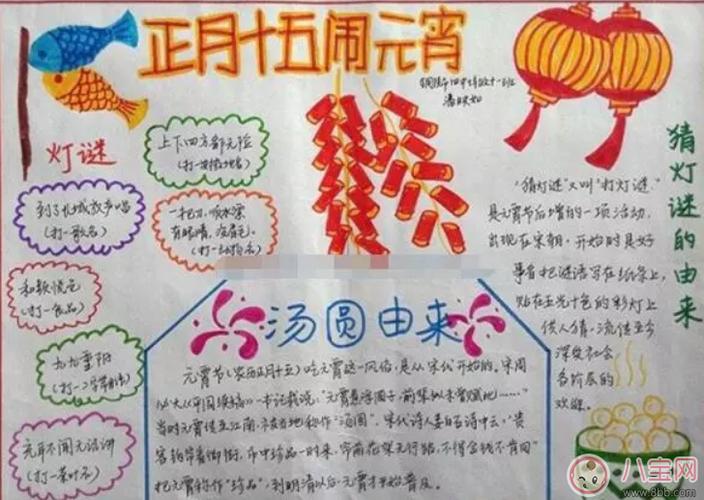 正月十五闹元宵
灯谜
上下四方都无险
(打一安徽地名)
到了北城放声唱
(打一歌名)
一把刀，顺水漂
有眼睛，没眉毛。
(打一动物名)
(打一食品)
九九重阳
充耳不闻无话讲
(打一茶叶名)
猜灯谜的由来
"猜灯谜"又叫"打灯谜"
是元宵节后增的一项活动，
出现在宋朝。开始时是好
事者把谜语写在纸条上，
贴在五光十色的彩灯上
供人猜，流传至今
深受社会
各阶层的
欢迎。
汤圆由来
元宵节(农历正月十五)吃元宵这一风俗，是从宋代开始的。宋周
必大《平园续稿》一书记载说："元宵煮浮圆子，前辈似未曾赋此……"
当时元宵传至江南，市在当地称作"汤圆"。宋代诗人姜白石诗中云："贵
客钩帘看御街，市中珍品一时来，帘前花架无行路，不得金钱不肯回"
把元宵称作"珍品"，到明清以后，元宵才开始普及。
八宝网
www.8bb.com